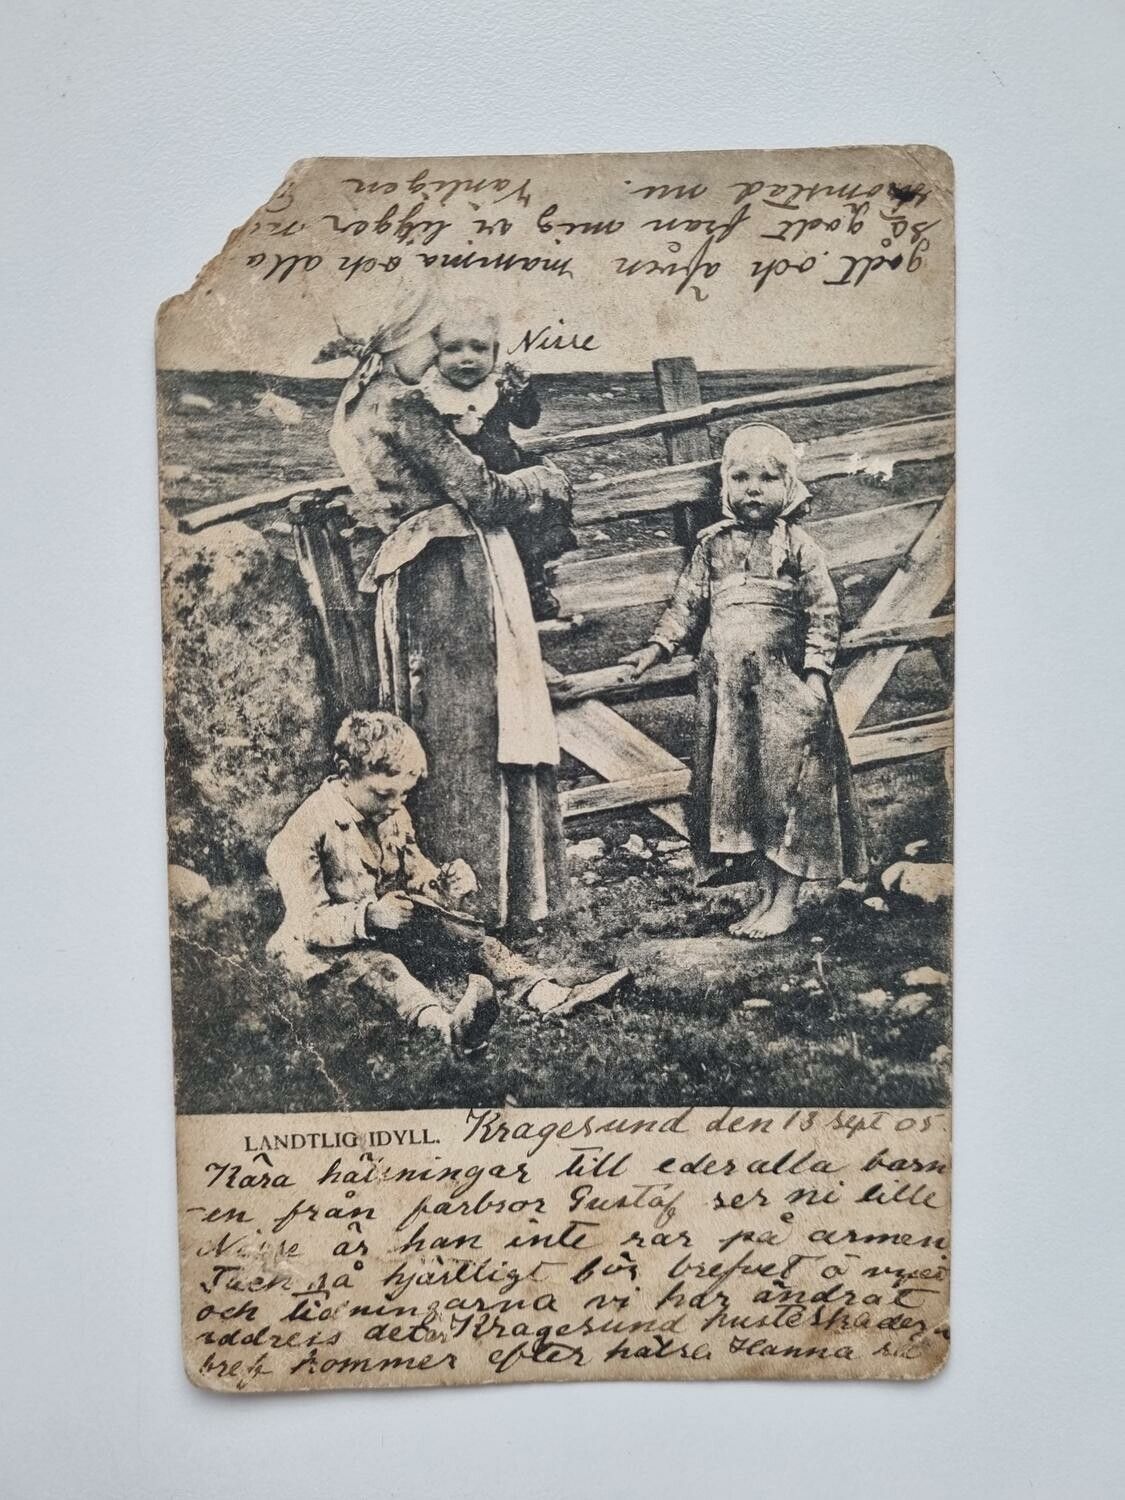 LANDTLIG IDYLL. Kragesund den 13 sept 05.
Kära hälsningar till eder alla barn
-en från farbror Gustaf ser ni lille
Nisse är han inte rar på armen
Tack så hjärtligt för brefvet o
och tidningarna vi har ändrat
address det är Kragesund
bref kommer efter hälsa Hanna
godt och äfven mamma och alla
så godt från mig vi ligger
nu. Vanligen
Nisse